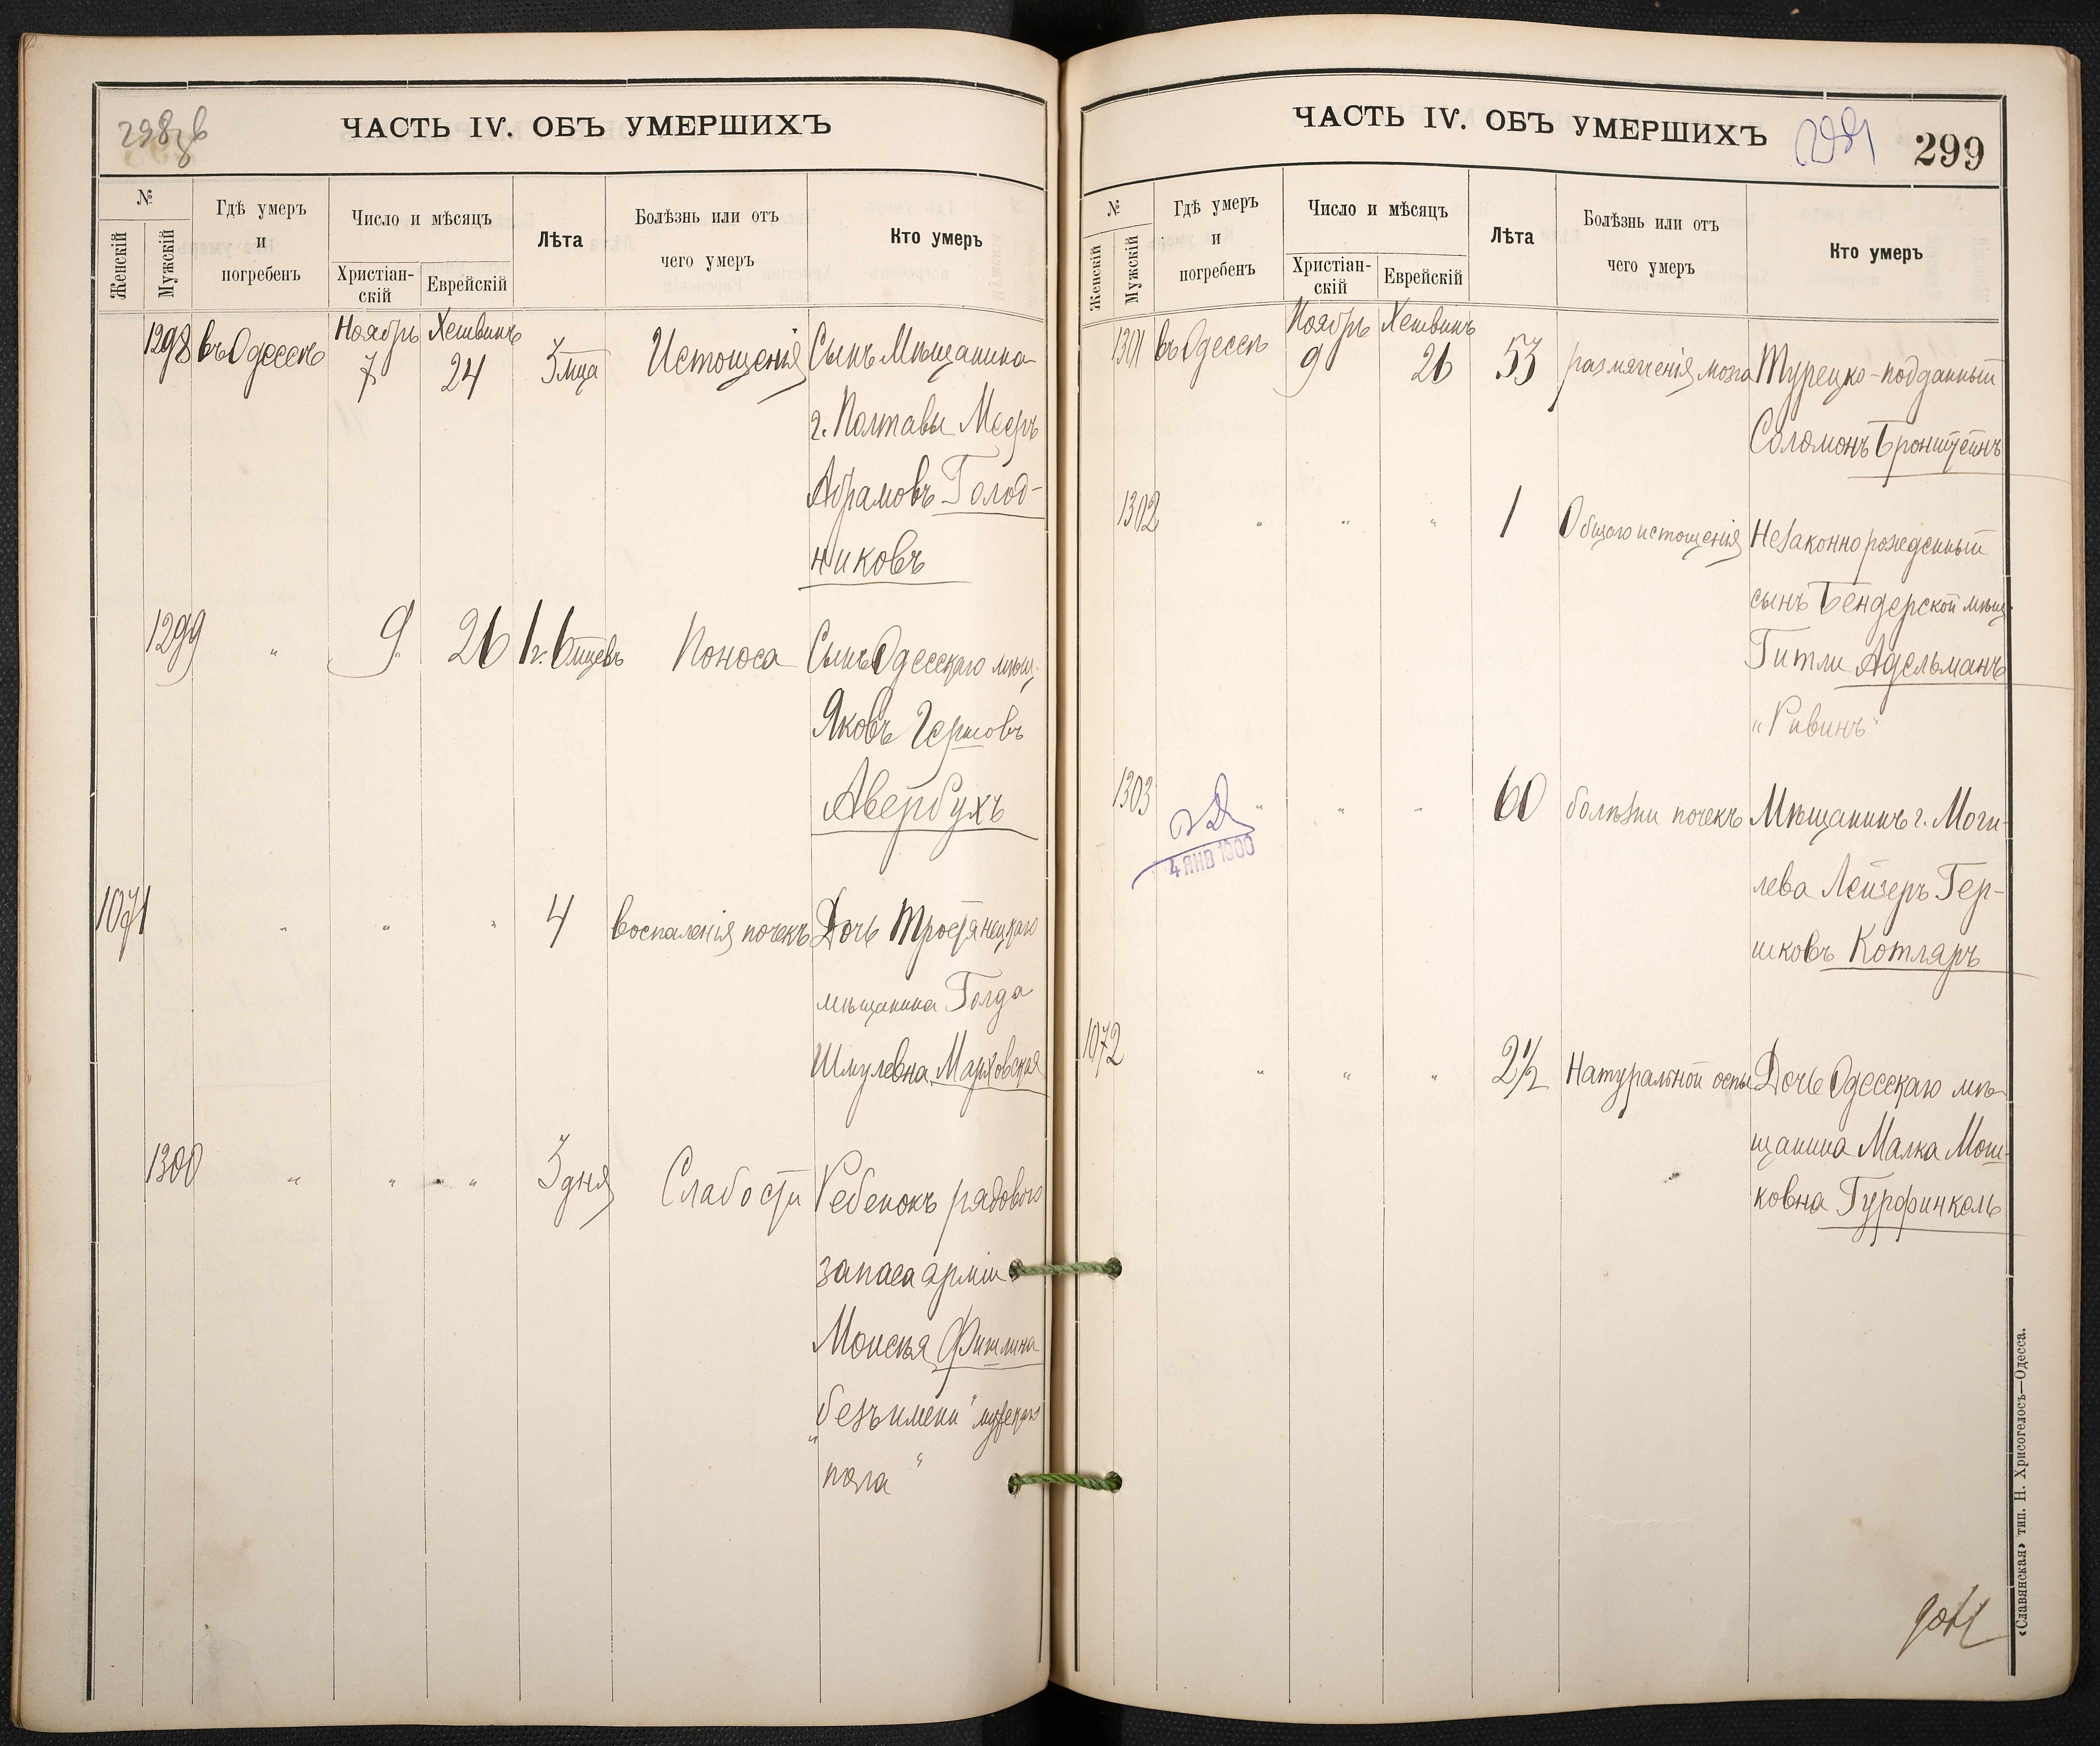 298 об
ЧАСТЬ IV. ОБЪ УМЕРШИХЪ
№
Женскій
Мужскій
Гдѣ умеръ
и
погребенъ
Число и мѣсяцъ
Христіан-
скій
Еврейскій
Лѣта
Болѣзнь или отъ
чего умеръ
Кто умеръ
Ноябрь Хешвинъ
1298 въ Одессѣ 7 24 3 мца Истощенія Сынъ Мѣщанина
г. Полтавы Мееръ
Абрамовъ Голод-
никовъ
1299 " 9. 26 1 г. 6 мцевъ Поноса Сынъ Одесскаго мѣщ.
Яковъ Гершовъ
Авербухъ
1071 " " " 4 воспаленія почекъ Дочь Тростянецкаго
мѣщанина Голда
Шмулевна Марховская
1300 " " " 3 дня Слабости Ребенокъ рядового
запаса арміи
Моисея Фишлина
"безъ имени" мужскаго
пола "
ЧАСТЬ IV. ОБЪ УМЕРШИХЪ
299
299
№
Женскій
Мужскій
Гдѣ умеръ
и
погребенъ
Число и мѣсяцъ
Христіан-
скій
Еврейскій
Лѣта
Болѣзнь или отъ
чего умеръ
Кто умеръ
Ноябрь Хешвинъ
1301 въ Одессѣ 9 26 53 размягченія мозга Турецко-подданный
Соломонъ Бронштейнъ
1302 " " " 1 Общаго истощенія Незаконнорожденный
сынъ Бендерской мѣщ.
Гитли Адельманъ
"Рувинъ"
1303 " " " 60 болѣзни почекъ Мѣщанинъ г. Моги-
лева Лейзеръ Гер-
шковъ Котляръ
4 ЯНВ 1900
1072 " " " 2½ Натуральной оспы Дочь Одесскаго мѣ-
щанина Малка Мош-
ковна Гурфинкель
«Славянская» тип. Н. Хрисогелосъ—Одесса.